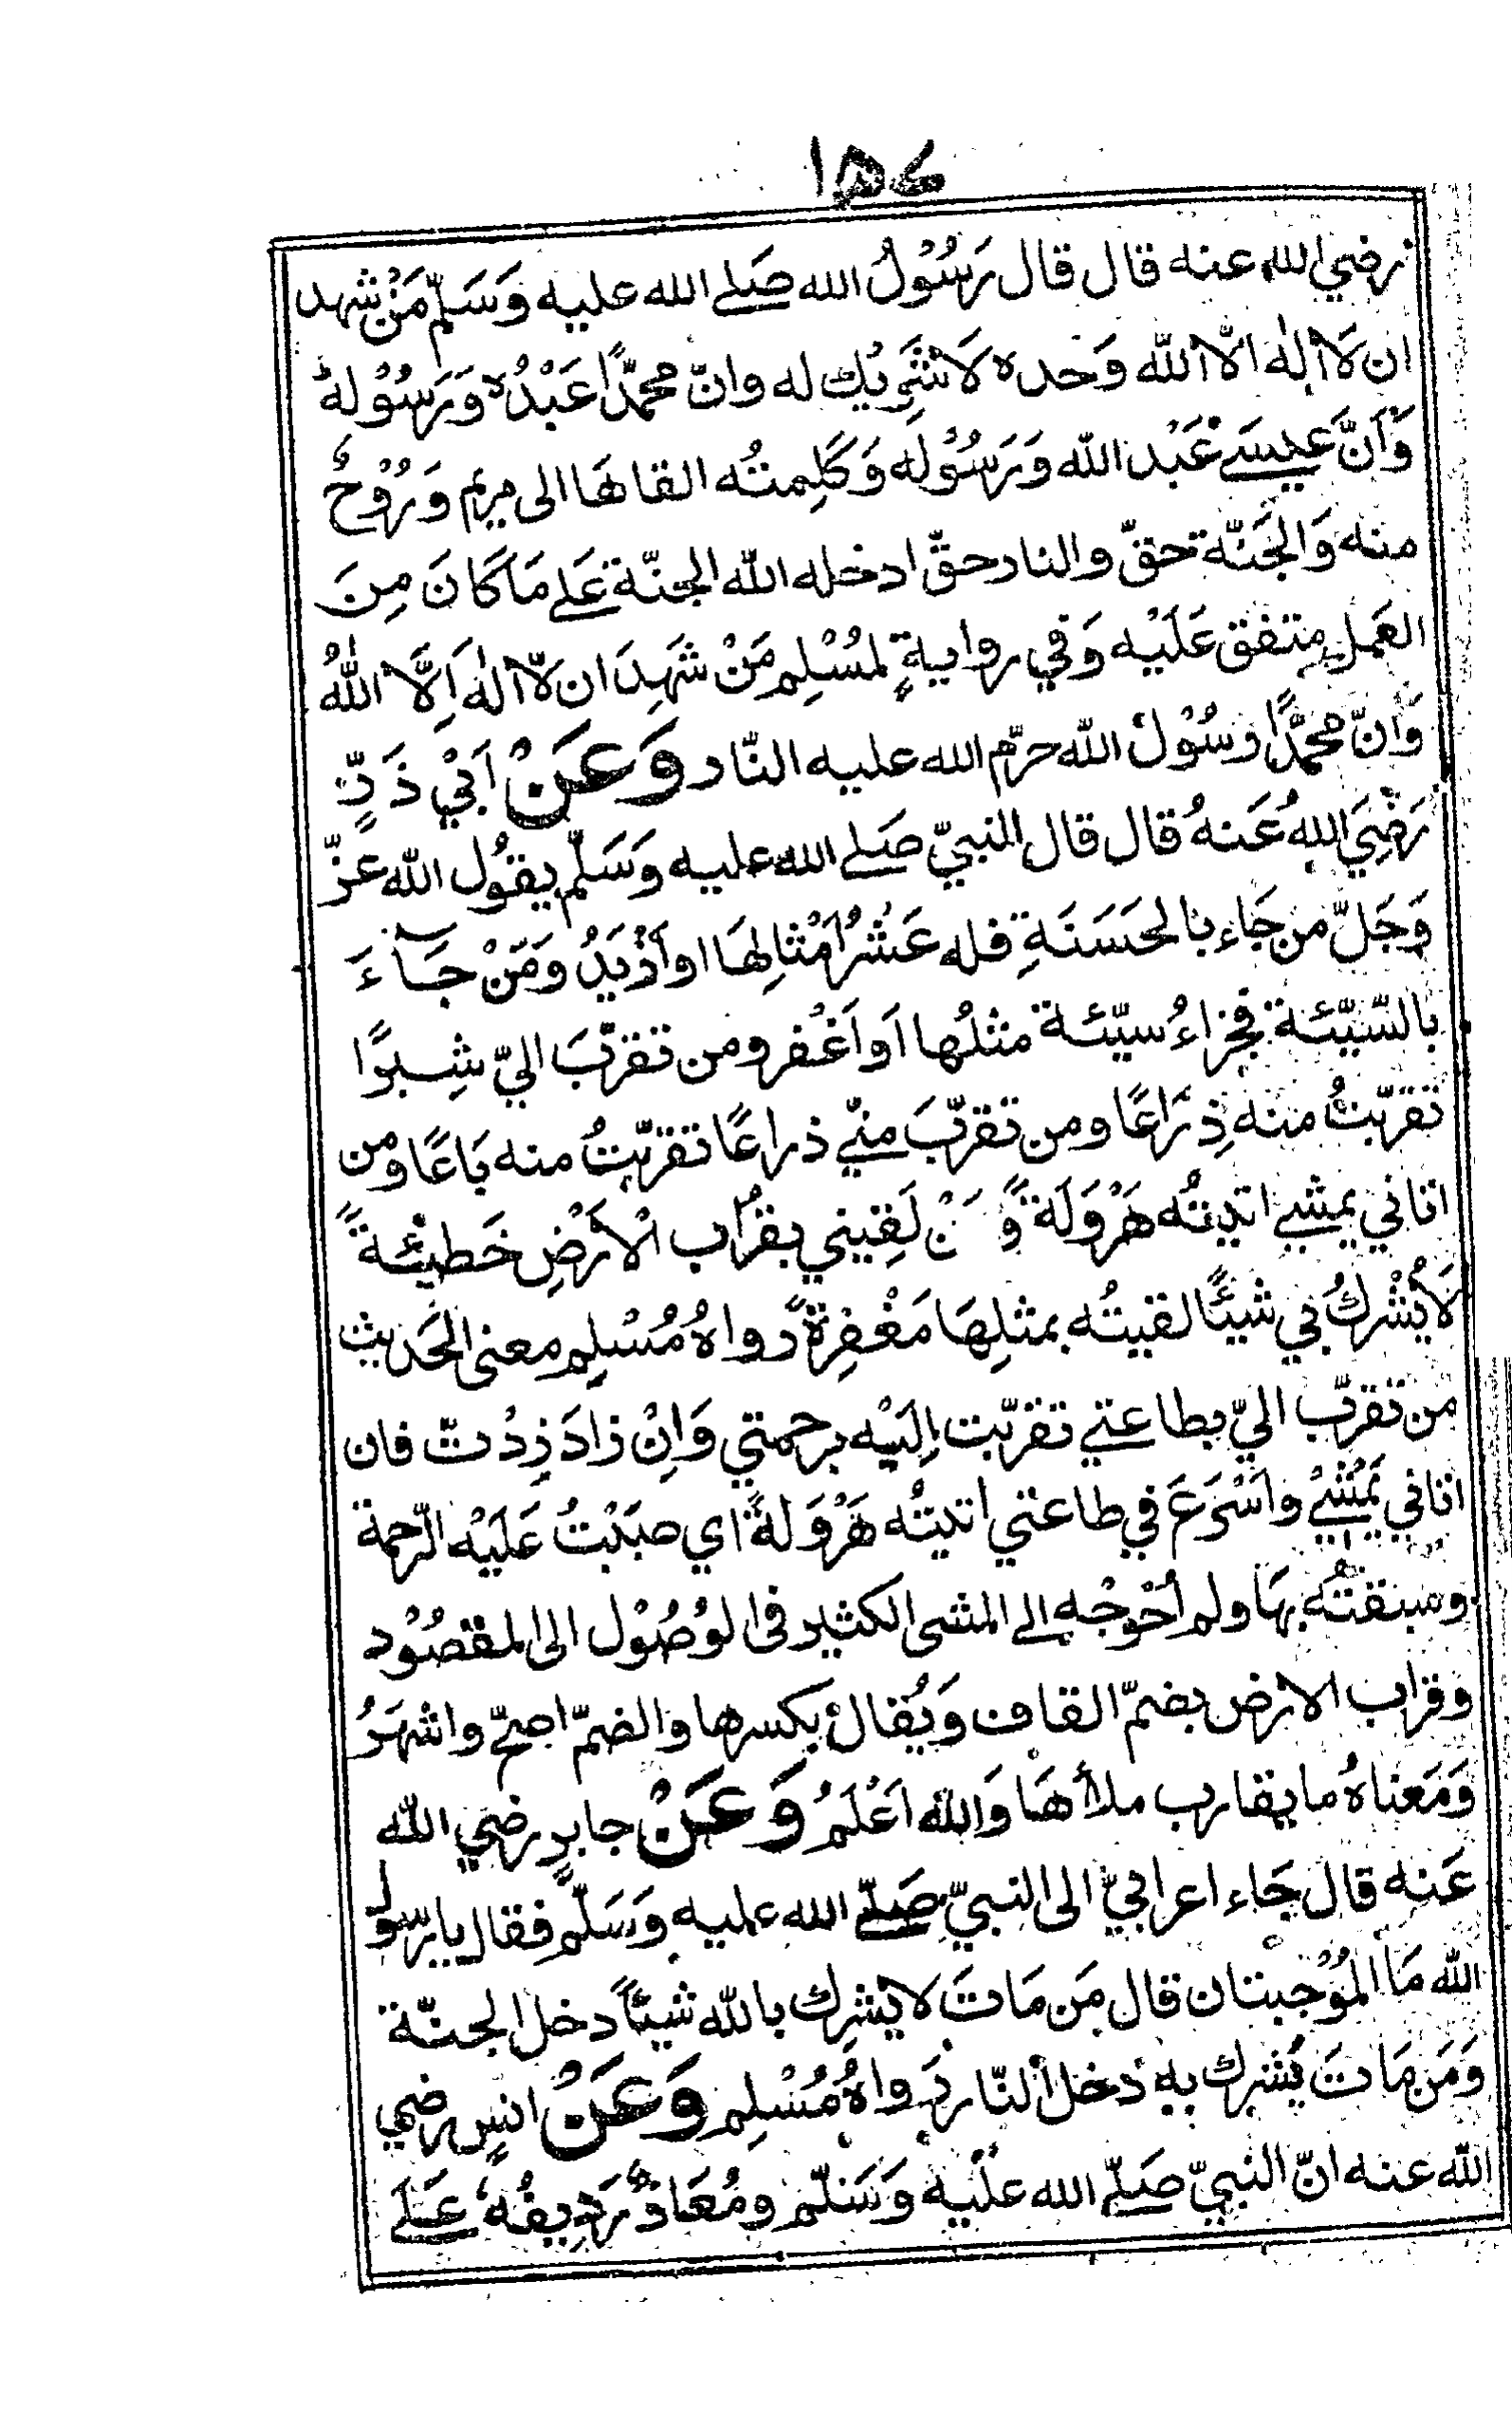 ١٥٤
رضي الله عنه قال قال رَسُوْلُ الله صَلے الله عليه وَسَلّم مَنْ شهد
ان لَا اِلٰه الّا الله وَحده لَا شَرِيك له وانّ محمّدًا عَبْدُه وَرَسُوْله
وَاَنَّ عيسَے عَبْد الله وَرَسُوْلُه وَكَلِمتُه القاهَا الى مريَم وَرُوْحٌ
منه وَالجَنّة حقّ والنار حقّ ادخله الله الجنّة عَلے مَا كَانَ مِنَ
العَمل متفق عَلَيْه وَفي روايةٍ لمُسْلِم مَنْ شَهِدَ ان لّا الٰه اِلَّا اللّٰهُ
وَانّ محمّدًا رسُوْل الله حرّم الله عليه النّار وَعَنْ اَبيْ ذَرٍّ
رَضِيَ اللهُ عَنهُ قال قال النبيّ صَلے الله عليه وَسَلّم يقُول الله عزّ
وَجَلّ من جَاء بالحَسَنَةِ فله عَشْرُ اَمْثالِهَا او اَزْيَدُ وَمَنْ جَآءَ
بالسّيّئة فجزاءُ سيّئة مثلُها اَو اَغْفر ومن تقرّبَ اليّ شِبرًا
تقرّبتُ منه ذِرَاعًا ومن تقرّبَ منّے ذراعًا تقرّبتُ منه بَاعًا ومن
اتاني يمشے اتيتُه هَرْوَلَة وَّمَنْ لَقِيني بقرُاب الْاَرْضِ خَطيْئةً
لَا يُشْركُ بي شيئًا لقيتُه بمثلِهَا مَغْفِرةً رواهُ مُسْلِم معنى الحَديث
من تقرّب اليّ بطاعتے تقرّبت اِلَيْه برحمتي وَاِنْ زادَ زِدْتّ فان
اتاني يَمْشِيْ واَسْرَعَ في طاعتي اتيتُه هَرْوَلةً اي صبَبْتُ عَلَيْه الرّحمة
وسبقتُه بهَا ولم اُحْوجْه الے المشى الكثير فى الوُصُوْل الى المقصُوْد
وقراب الارض بضمّ القاف وَيُقالُ بكسرها والضمّ اصحّ واشهَرُ
وَمَعناهُ ما يقارب ملأهَا وَالله اَعْلَمُ وَعَنْ جابرٍ رضي الله
عَنه قال جَاء اعرابيّ الى النبيّ صَلّے الله عليه وَسَلّم فقال يا رسول
الله مَا المُوْجبتان قال مَن مَاتَ لا يشرِك بالله شيئاً دخل الجنّة
وَمَن مَاتَ يُشرك به دخل النّار رَواهُ مُسْلِم وَعَنْ انسٍ رضي
الله عنه انّ النبيّ صَلّے الله عليْه وَسَلّم ومُعَاذٌ رَدِيفُهٗ عَلَے